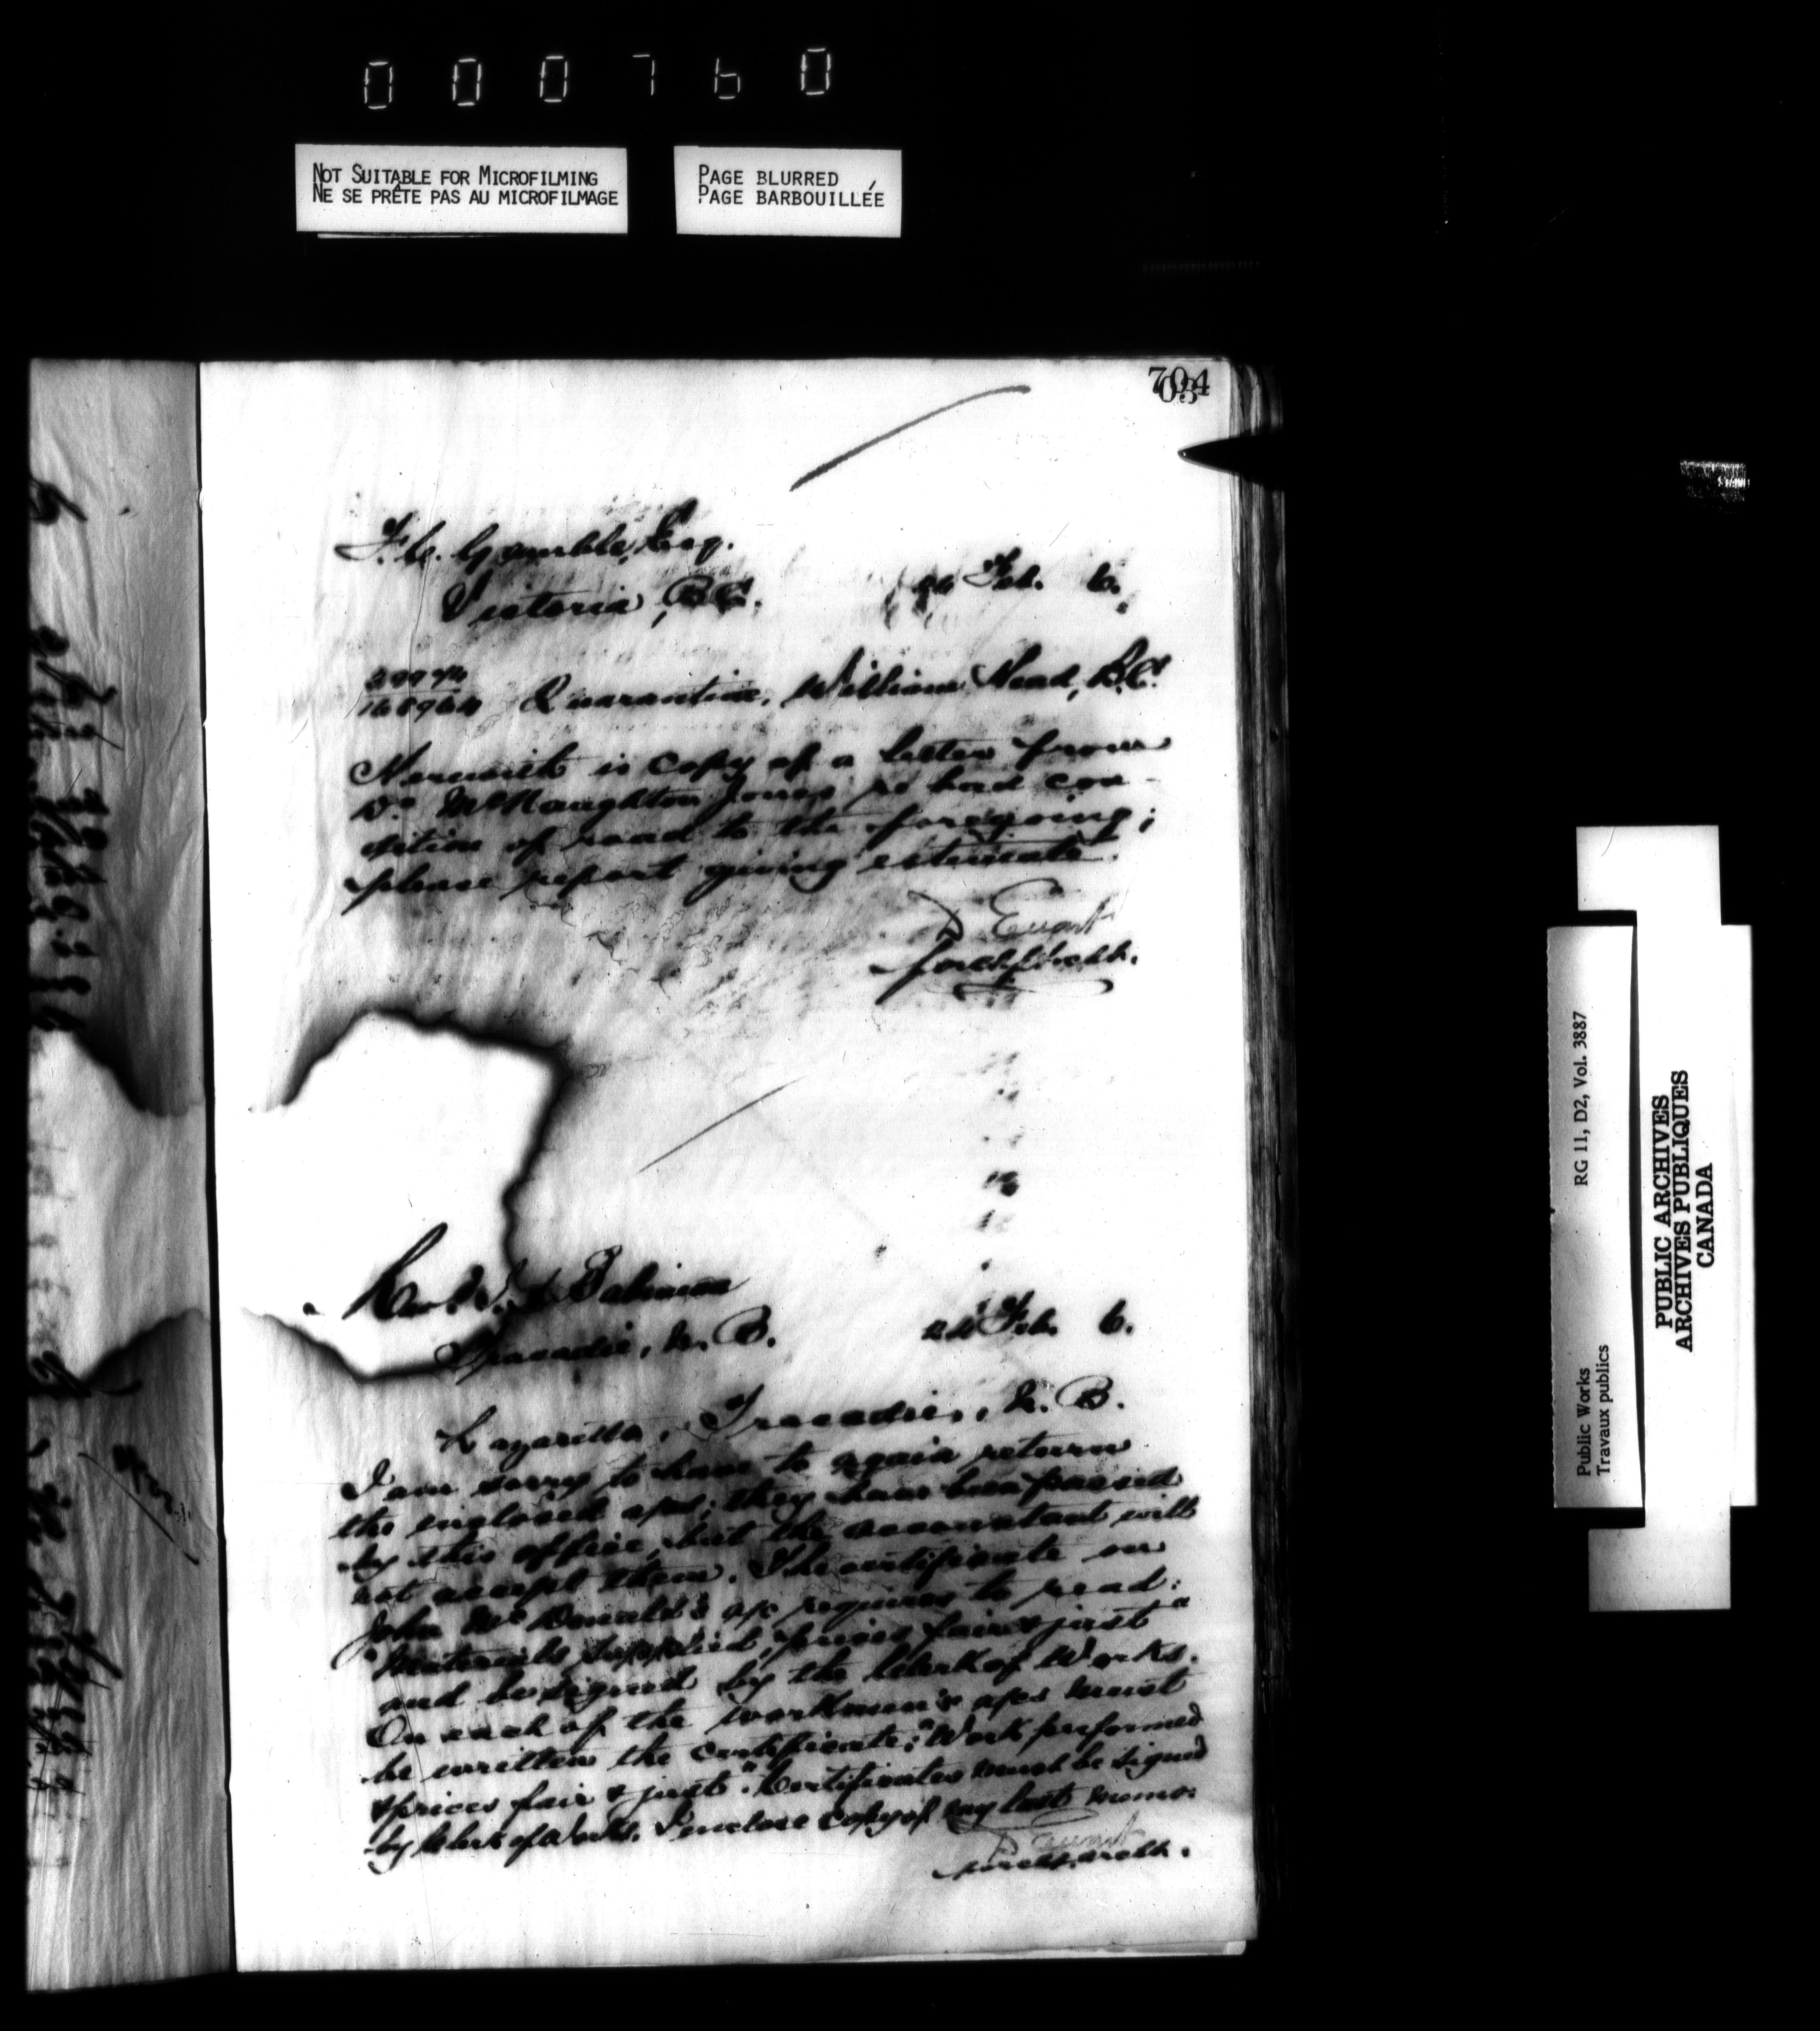 000760
NOT SUITABLE FOR MICROFILMING
NE SE PRÊTE PAS AU MICROFILMAGE
PAGE BLURRED
PAGE BARBOUILLÉE
704
F. C. Gamble, Esq.
Victoria, B.C. 24 Feb. 6.
Quarantine, William Head, B.C.
Herewith is copy of a letter from
Dr. McNaughton Jones re bad con-
dition of road to the foregoing;
please report giving estimate.
D Ewart
for chf. archt.
Rev. Babineau
Tracadie, N. B. 24 Feb. 6.
Lazaretto, Tracadie, N. B.
I am sorry to have to again return
the enclosed a/cs; they have been passed
by this office, but the accountant will
not accept them. The certificate on
John McDonald's a/c requires to read:
"Materials supplied, prices fair & just"
and be signed by the Clerk of Works.
On each of the workmen's a/cs must
be written the certificate: "Work performed
& prices fair & just". Certificates must be signed
by Clerk of Works. I enclose copy of my last memo.
D Ewart
for chf. archt.
RG 11, D2, Vol. 3887
Public Works
Travaux publics
PUBLIC ARCHIVES
ARCHIVES PUBLIQUES
CANADA